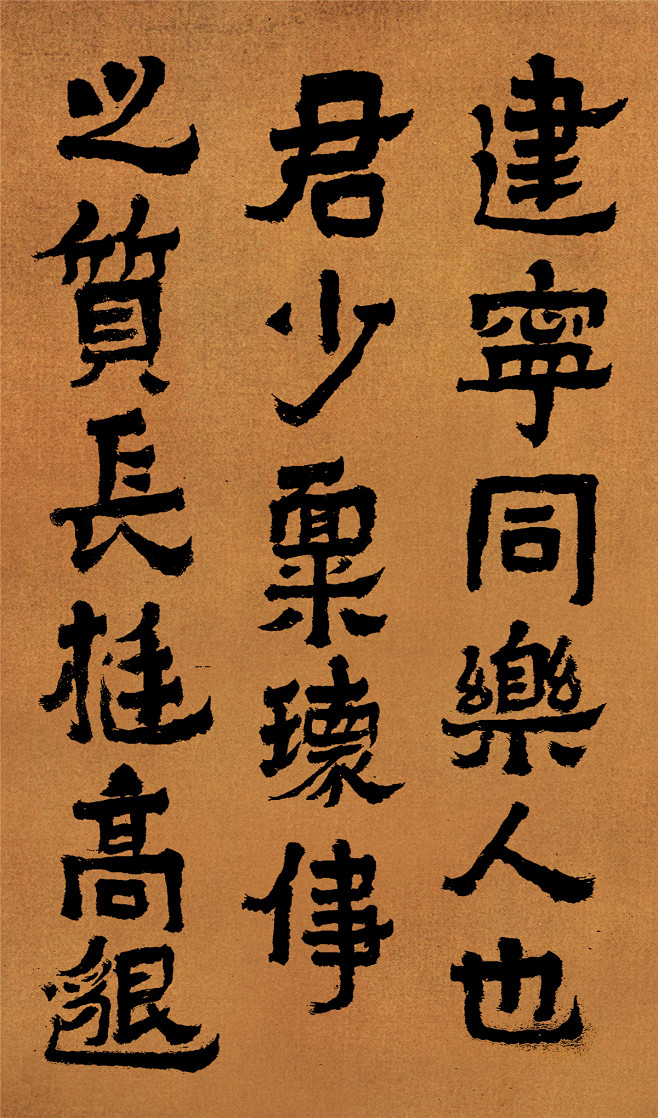 建寧同樂人也
君少稟瓌偉
之質長挺高邈